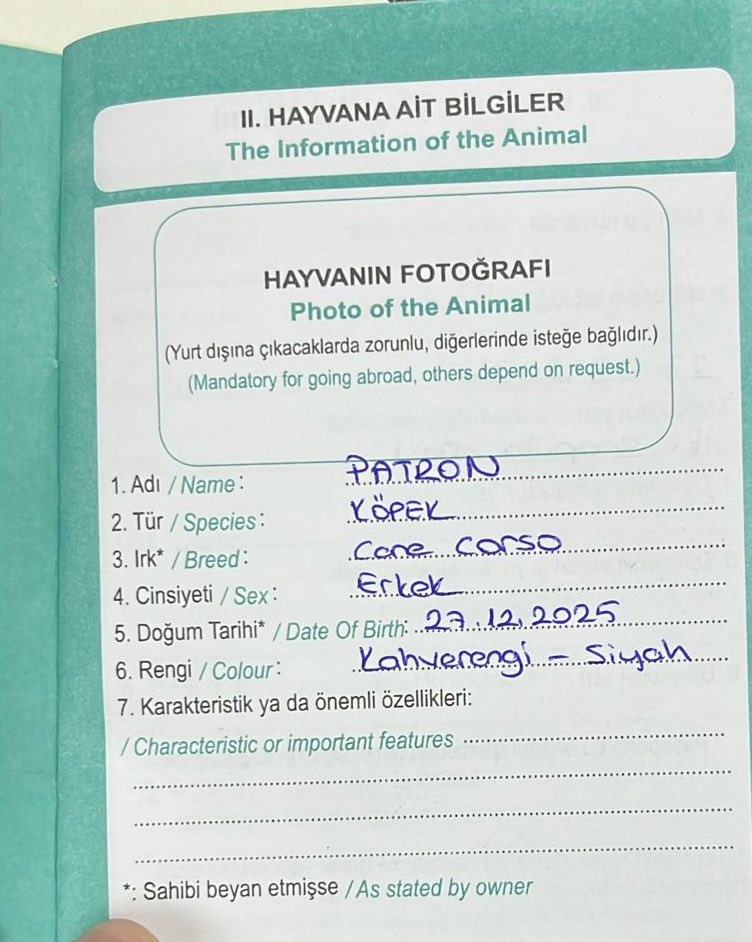 II. HAYVANA AİT BİLGİLER
The Information of the Animal
HAYVANIN FOTOĞRAFI
Photo of the Animal
(Yurt dışına çıkacaklarda zorunlu, diğerlerinde isteğe bağlıdır.)
(Mandatory for going abroad, others depend on request.)
1. Adı / Name: PATRON
2. Tür / Species: KÖPEK
3. Irk* / Breed: Cane corso
4. Cinsiyeti / Sex: Erkek
5. Doğum Tarihi* / Date Of Birth: 27.12.2025
6. Rengi / Colour: Kahverengi - Siyah
7. Karakteristik ya da önemli özellikleri:
/ Characteristic or important features
*: Sahibi beyan etmişse / As stated by owner